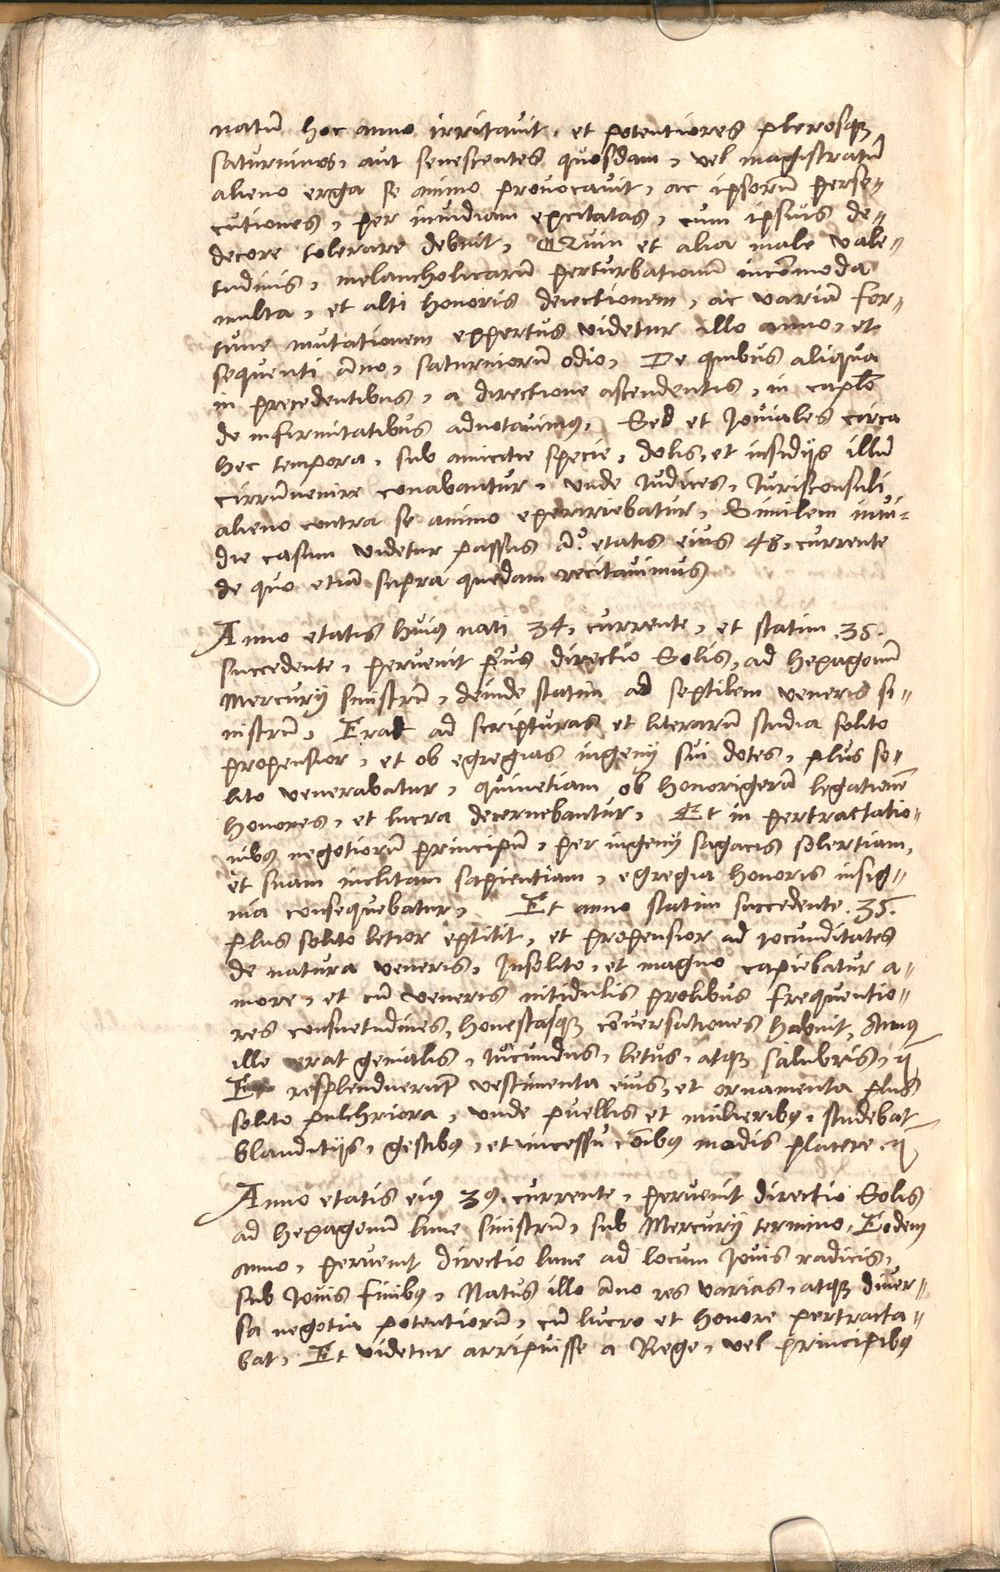 natū hoc anno irritavit, et potentiores plerosqȝ
saturninos, aut senescentes quosdam, vel magistratū
alieno erga se animo provocavit, ac ipsorū perse-
cutiones, per invidiam excitatas, cum ipsius de-
decore tolerare debuit, Quin et alia male vale-
tudinis, melancholicarū perturbationū incōmoda
multa, et alti honoris deiectionem, ac variā for-
tune mutationem expertus videtur illo anno, et
sequenti āno, saturniorū odio, De quibus aliqua
in precedentibus, a directione ascendentis, in caplō
de infirmitatibus adnotavimꝯ, Sed et Joviales circa
hec tempora, sub amicitie specie, dolis, et insidijs illū
circūvenire conabantur, unde Judices, Jurisconsulti
alieno contra se animo experiebatur, Similem invi-
die casum videtur passus āo. etatis eius 48, currente
de quo etiā supra quedam recitavimus
Anno etatis huiꝯ nati 34, currente, et statim .35.
succedente, pervenit pꝰus directio Solis, ad hexagonū
Mercurij sinistrū, deinde statim ad sextilem veneris si-
nistrū, Erat ad scripturas et literarū studia solito
propensior, et ob egregias ingenij sui dotes, plus so-
lito venerabatur, quinetiam ob honorigerā legationē
honores, et lucra decernebantur, Et in pertractatio-
nibꝯ negotiorū principū, per ingenij sagacis solertiam,
et suam inclitam sapientiam, egregia honoris insig-
nia consequebatur, Et anno statim succedente .35.
plus solito letior extitit, et propensior ad iocunditates
de natura veneris, Insolito, et magno capiebatur a-
more, et cū veneris nitidulis prolibus frequentio-
res consuetudines, honestasqȝ cōversationes habuit, Annꝯ
ille erat genialis, iucundus, letus, atqȝ salubris,
Et resplenduerunt vestimenta eius, et ornamenta plus
solito pulchriora, unde puellis et mulieribꝯ, studebat
blanditijs, gestibꝯ, et incessu ōibꝯ modis placere.
Anno etatis eiꝯ 39. currente, pervenit directio Solis
ad hexagonū lune sinistrū, sub Mercurij termino, Eodem
anno, pervenit directio lune ad locum Jovis radicis,
sub Jovis finibꝯ, Natus illo āno res varias, atqȝ diver-
sa negotia potentiorū, cū lucro et honore pertracta-
bat, Et videtur arripuisse a Rege, vel principibꝯ